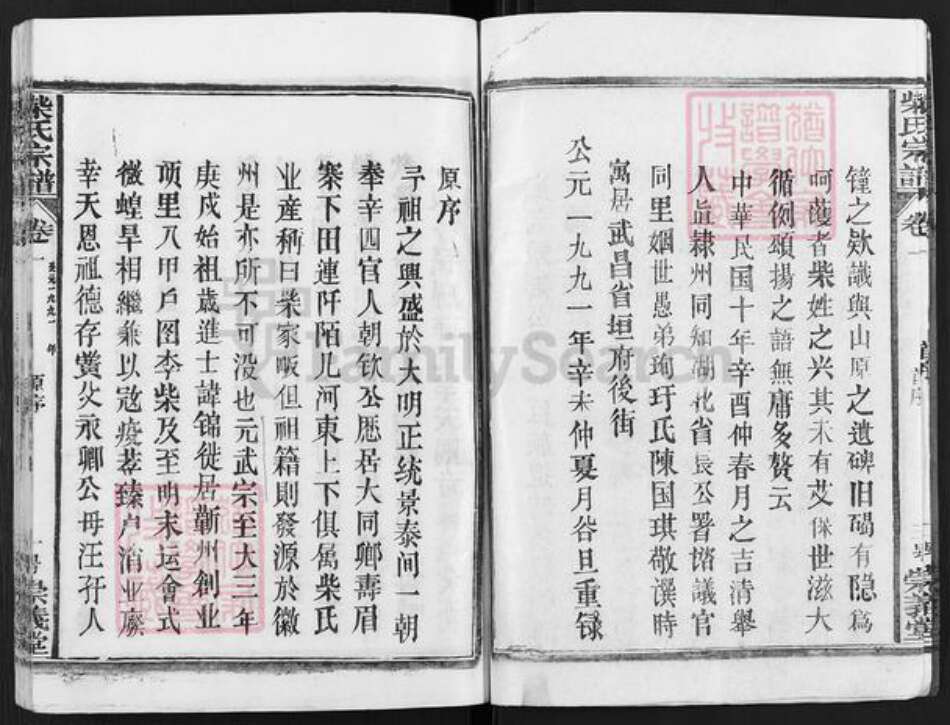 柴氏宗譜
卷一
鐘之欵識與山原之遺碑旧碣有隐為
呵護者柴姓之兴其未有艾俫世滋大
循例頌揚之語無庸多贅云
中華民国十年辛酉仲春月之吉清舉
人直隸州同知湖北省長公署谘議官
同里姻世愚弟珣玗氏陳国琪敬譔時
寓居武昌省垣府後街
公元一九九一年辛未仲夏月谷旦重录
崇義堂
原序
予祖之興盛於大明正統景泰间一朝
奉辛四官人朝钦公愿居大同鄉壽眉
寨下田連阡陌凡河東上下俱属柴氏
业産稱曰柴家畈但祖籍則發源於徽
州是亦所不可没也元武宗至大三年
庚戍始祖歲進士諱锦徙居蘄州創业
頑里八甲户图李柴及至明末运會式
微蝗旱相繼兼以寇疫荐臻户消业廢
幸天恩祖德存黉父永卿公母汪孖人
柴氏宗譜
卷一
公元一九九一年
原序
崇義堂
FamilySearch